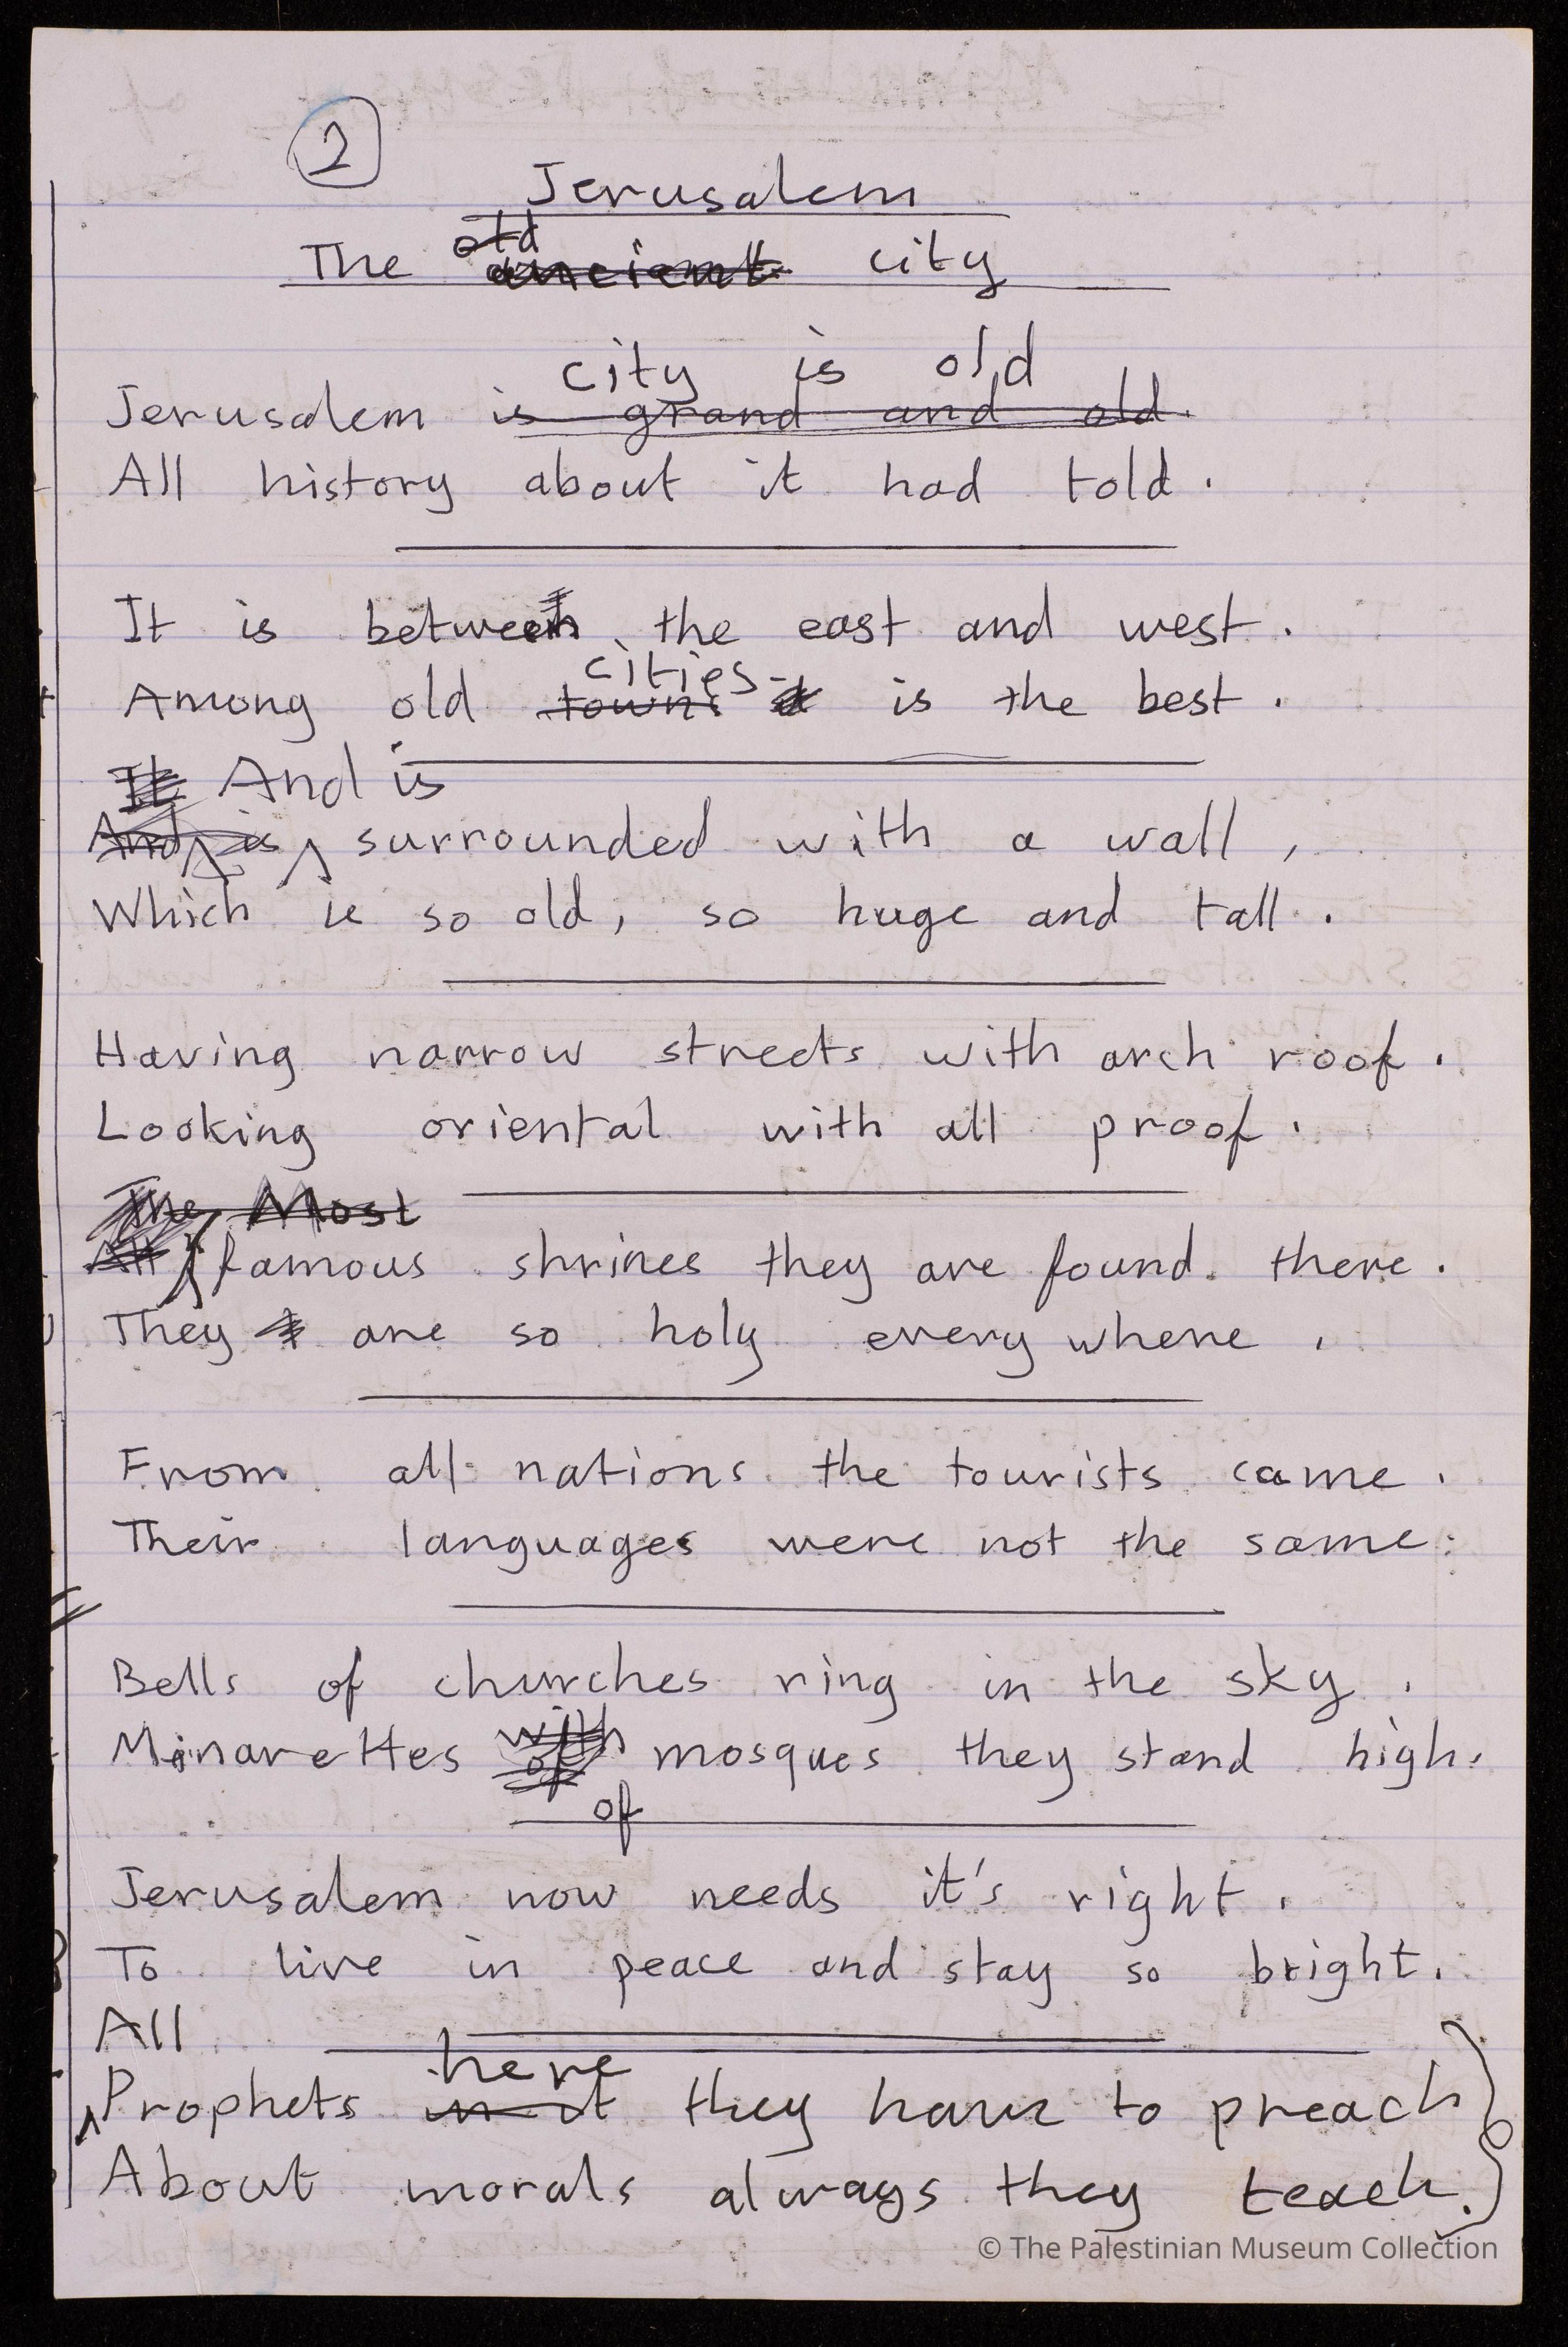 2
Jerusalem
old
The ancient city
city is old
Jerusalem is grand and old.
All history about it had told.
It is between the east and west.
cities
Among old towns it is the best.
It And is
And is surrounded with a wall,
Which is so old, so huge and tall.
Having narrow streets with arch roof.
Looking oriental with all proof.
The Most
All famous shrines they are found there.
They are so holy every where.
From all nations the tourists came.
Their languages were not the same.
Bells of churches ring in the sky.
with
Minarettes of mosques they stand high.
of
Jerusalem now needs it's right.
To live in peace and stay so bright.
All
here
Prophets in it they have to preach
About morals always they teach.
© The Palestinian Museum Collection